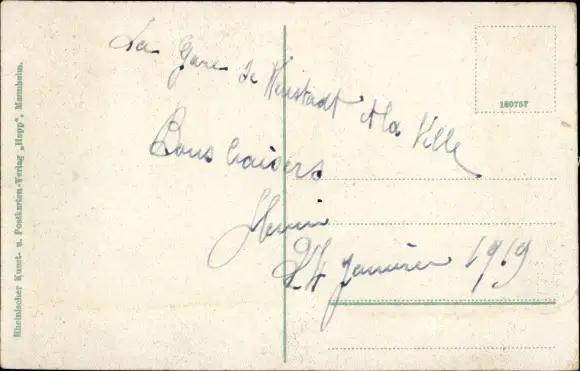 La Gare de Neustadt et la Ville
Bons baisers
Henri
24 janvier 1919
160757
Rheinischer Kunst- u. Postkarten-Verlag „Hepp", Mannheim.